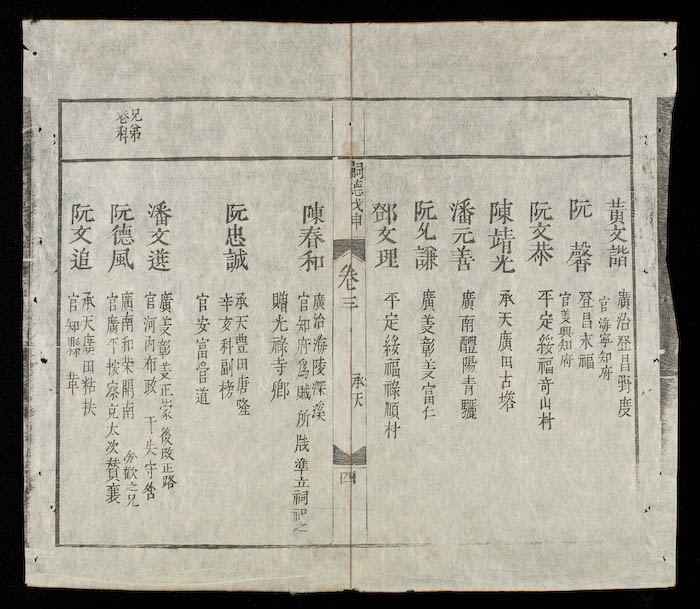 黄文諧
廣治登昌對度
官海寧知府
阮馨
登昌永福
官義興知府
阮文恭
平定綏福奇山村
陳靖光
承天廣田古塔
潘元善
廣南醴陽青驪
阮允謙
廣義彰義富仁
鄧文理
平定綏福祿順村
嗣德戊申
卷三
承天
四
陳春和
廣治海陵深溪
官知府爲賊所戕準立祠祀之
贈光祿寺卿
阮忠誠
承天豊田唐隆
辛亥科副榜
官安富管道
潘文選
廣義彰義正蒙後改正路
官河内布政
阮德風
廣南和榮開南
勞歡之兄
官廣平按察充太次賛襄
兄弟
仝科
阮文追
承天廣田粘扶
官知縣革